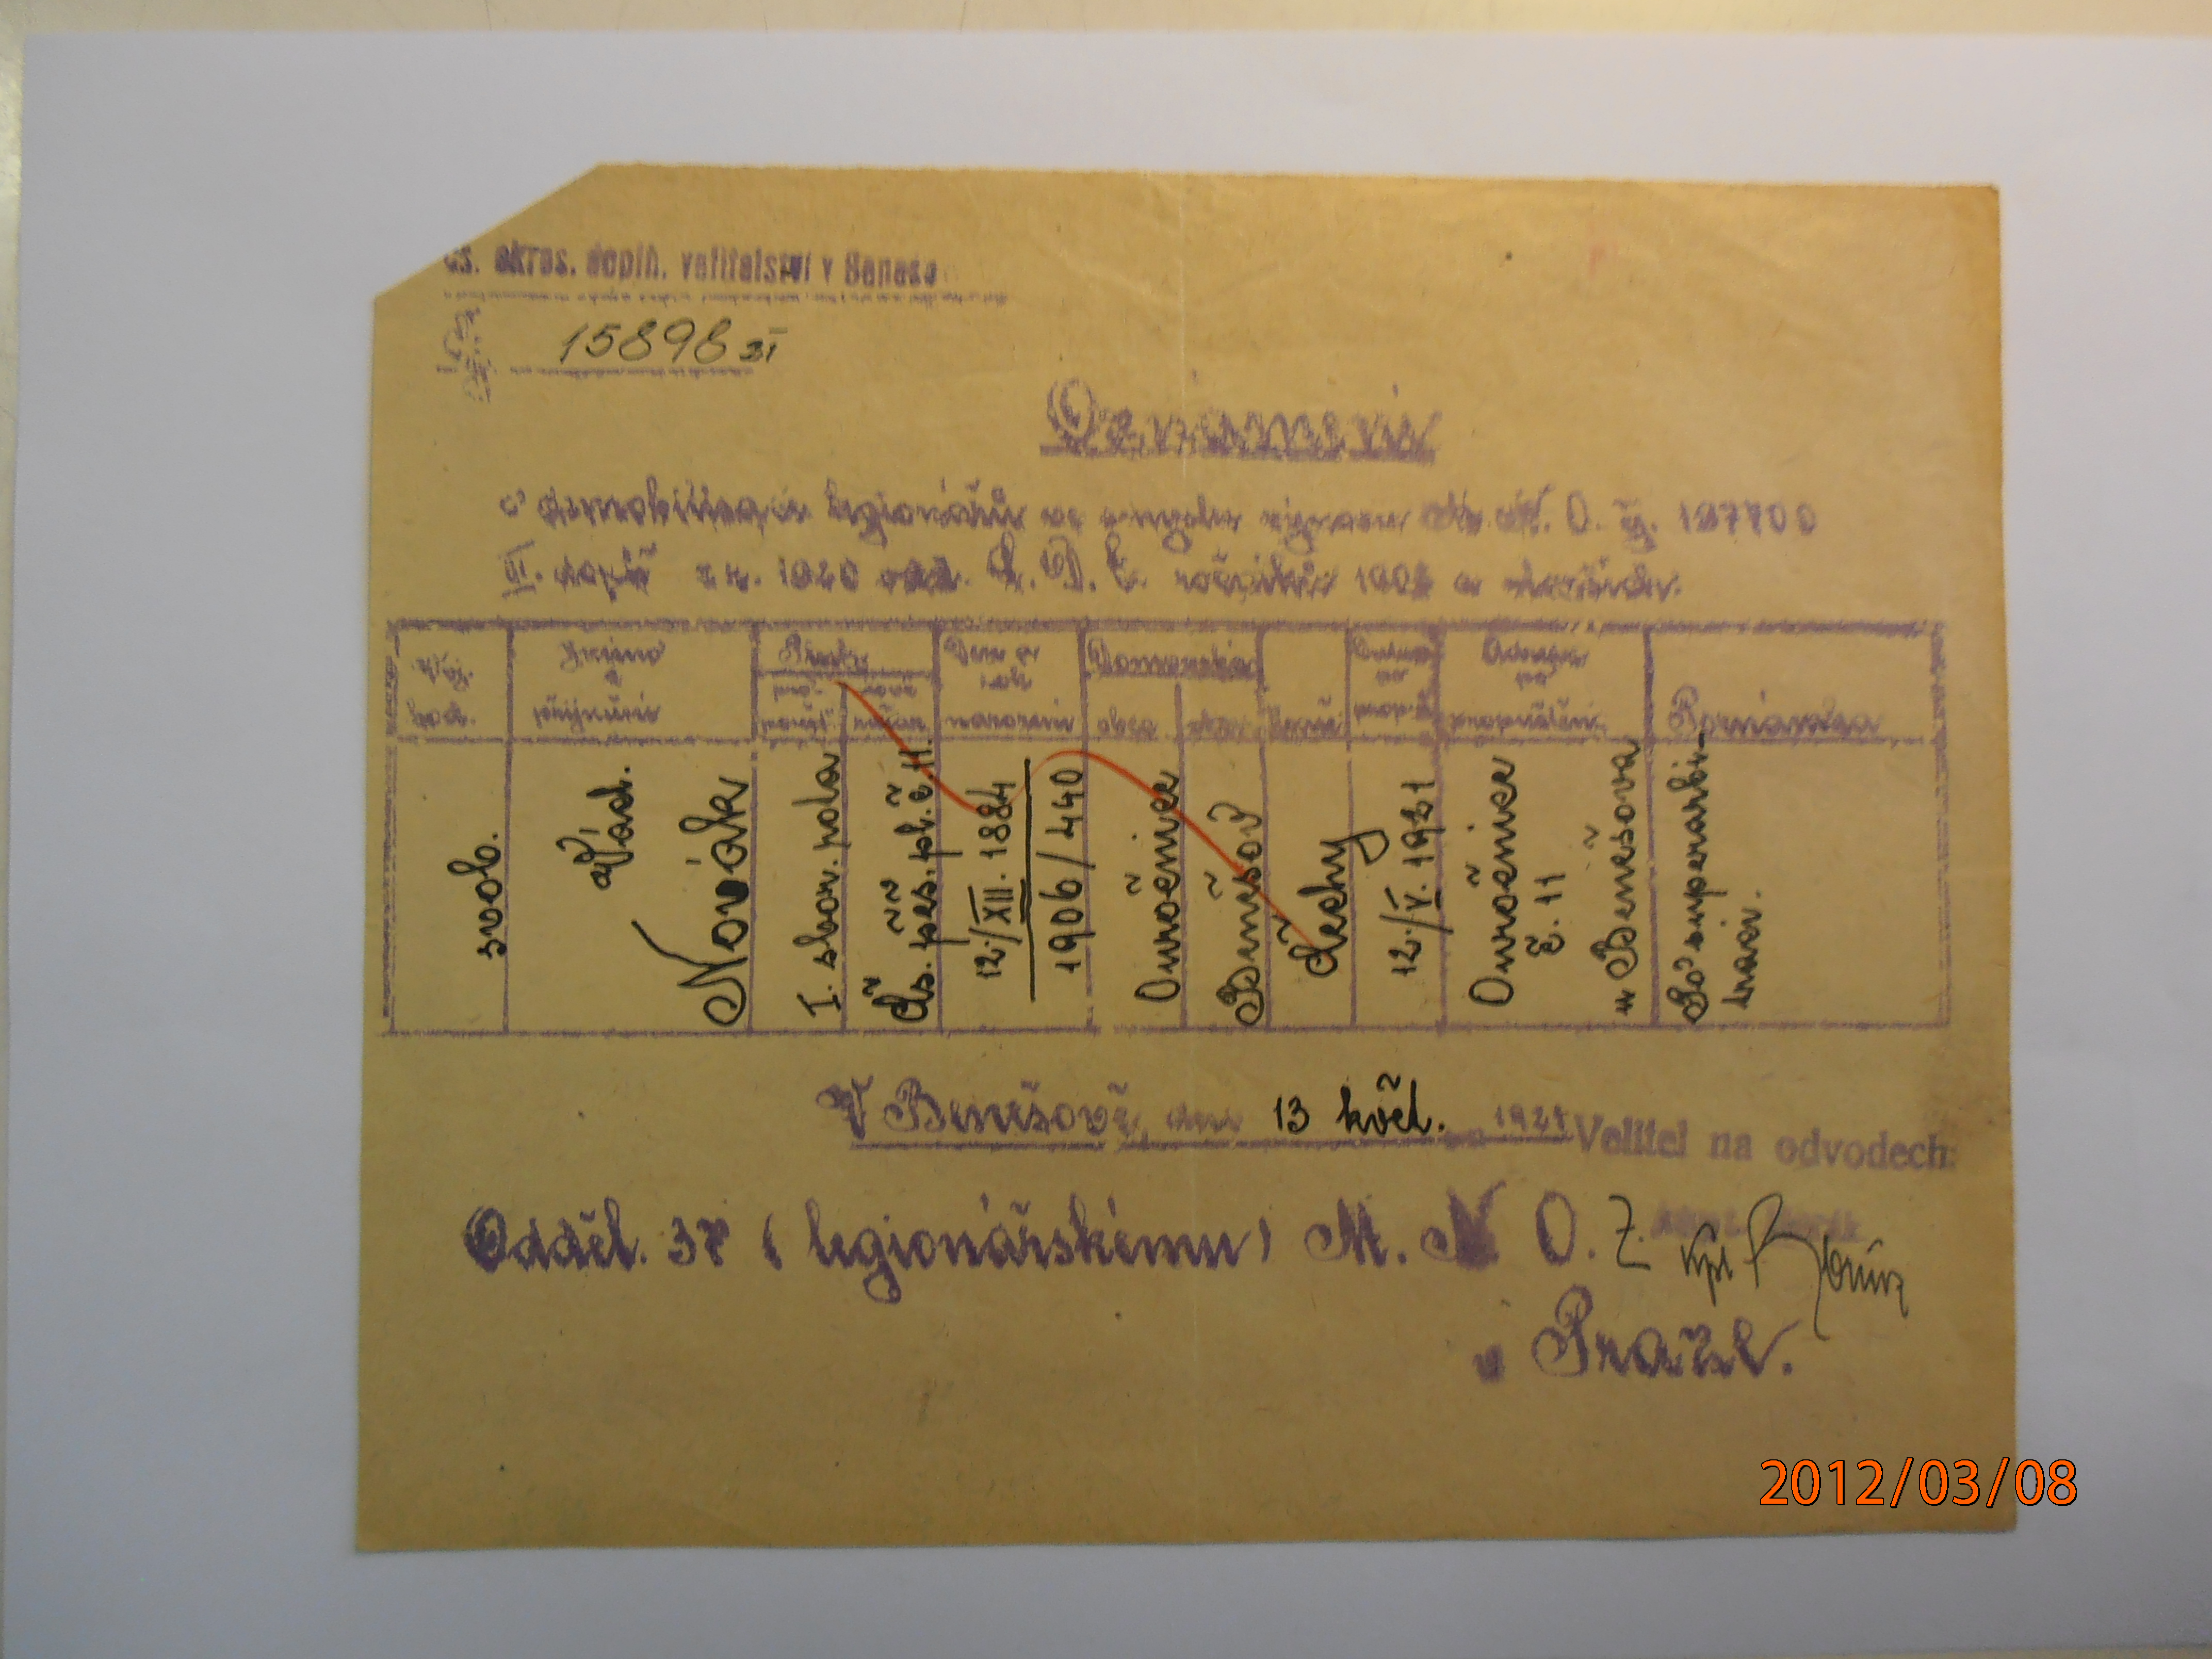 čs. okres. doplň. velitelství v Benešo
Čj. 15898 31
Oznámení
o demobilisaci legionářů ve smyslu výnosu M. N. O. č. 187700
III. dopň z r. 1920 odd. L. D. L. ročníků 190 a starších.
Voj. hod.
Jméno a příjmení
Pluk
Den a rok narození
Domovská
obec
okres
země
Adresa po propuštění
Poznámka
svob.
Václ.
Novák
I. sbor. pola
Čs. pěš. pl. č 11.
12./XII. 1884
1906/440
Ouročnice
Benešov
Čechy
12./V. 1921
Ouročnice
č. 11
u Benešova
Po superarbi-
traci.
V Benešově, dne 13 květ. 1921
Velitel na odvodech:
Odděl. 37 (legionářskému) M. N. O.
Z. kpt
v Praze.
2012/03/08